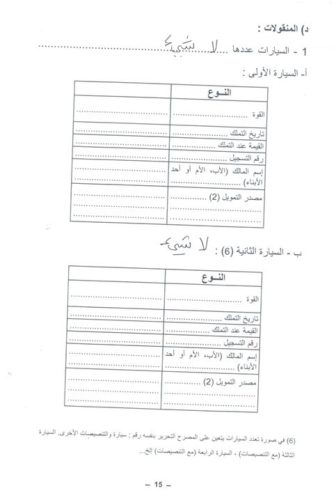 د) المنقولات :
1 - السيارات عددها ... لا شيء ...
أ- السيارة الأولى :
النــوع
القوة
تاريخ التملك
القيمة عند التملك
رقم التسجيل
إسم المالك (الأب، الأم أو أحد
الأبناء)
مصدر التمويل (2)
ب - السيارة الثانية (6) : لا شيء
النــوع
القوة
تاريخ التملك
القيمة عند التملك
رقم التسجيل
إسم المالك (الأب، الأم أو أحد
الأبناء)
مصدر التمويل (2)
(6) في صورة تعدد السيارات يتعين على المصرح التحرير بنفسه رقم : سيارة والتنصيصات الأخرى. السيارة
الثالثة (مع التنصيصات) ، السيارة الرابعة (مع التنصيصات) إلخ...
– 15 –